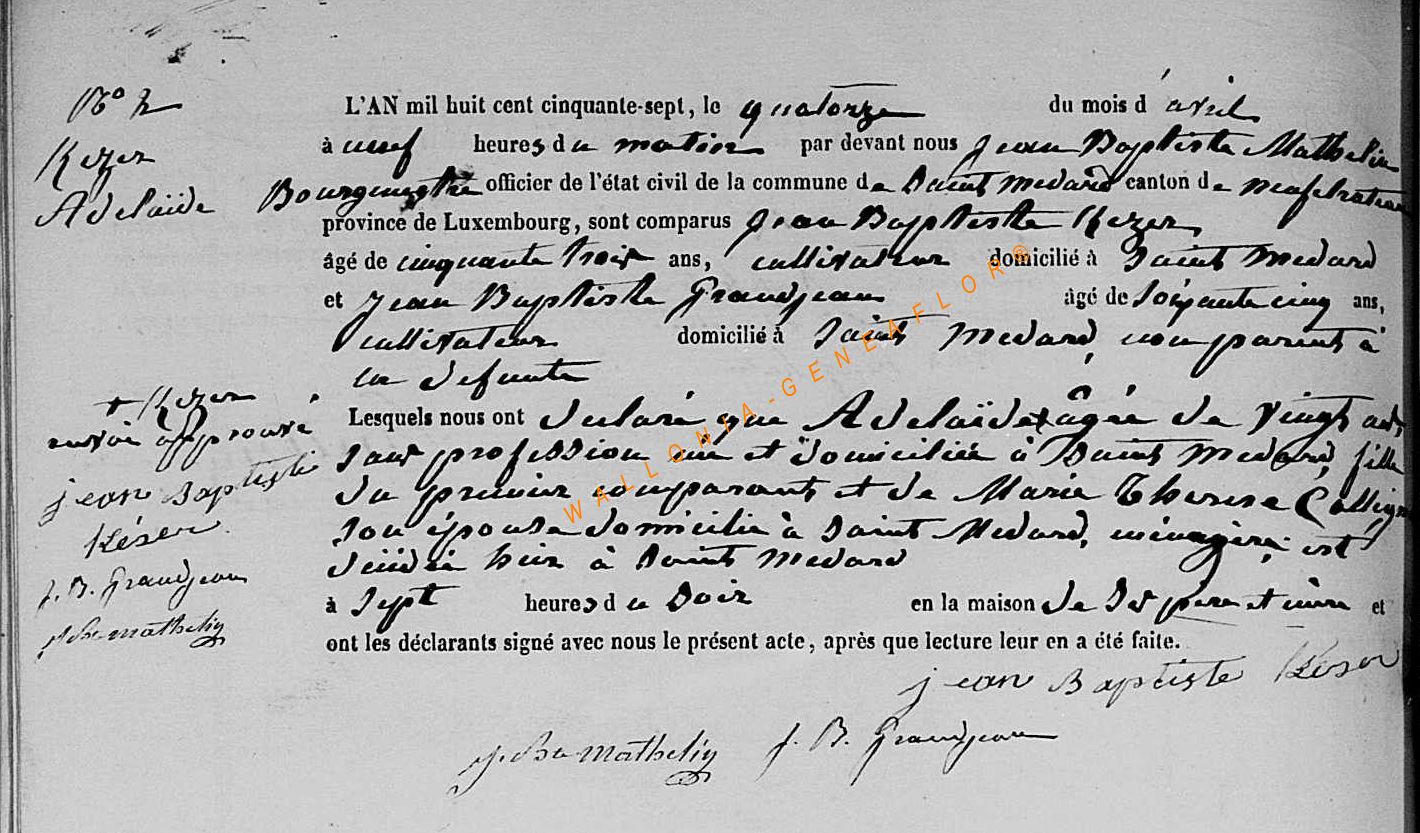 N° 2
Kezer
Adelaïde
L'AN mil huit cent cinquante-sept, le quatorze du mois d'avril
à neuf heures du matin par devant nous Jean Baptiste Mathelin
Bourgmestre officier de l'état civil de la commune de Saint Medard canton de neufchateau
province de Luxembourg, sont comparus Jean Baptiste Kezer
âgé de cinquante trois ans, cultivateur domicilié à Saint Medard
et Jean Baptiste Grandjean âgé de soixante cinq ans,
cultivateur domicilié à Saint Medard, non parent à
la defunte
Lesquels nous ont declaré que Adelaïde + âgée de vingt ans
sans profession née et domiciliée à Saint Medard, fille
du premier comparant et de Marie Therese Collignon
son épouse domicilié à Saint Medard, ménagère, est
décédée hier à Saint Medard
à sept heures du soir en la maison de ses père et mère et
ont les déclarants signé avec nous le présent acte, après que lecture leur en a été faite.
+ Kezer
renvoi approuvé
jean Baptiste
Késer
J. B. Grandjean
J Bte Mathelin
jean Baptiste Késer
J. Bte Mathelin J. B. Grandjean
WALLONIA-GENEAFLOR®